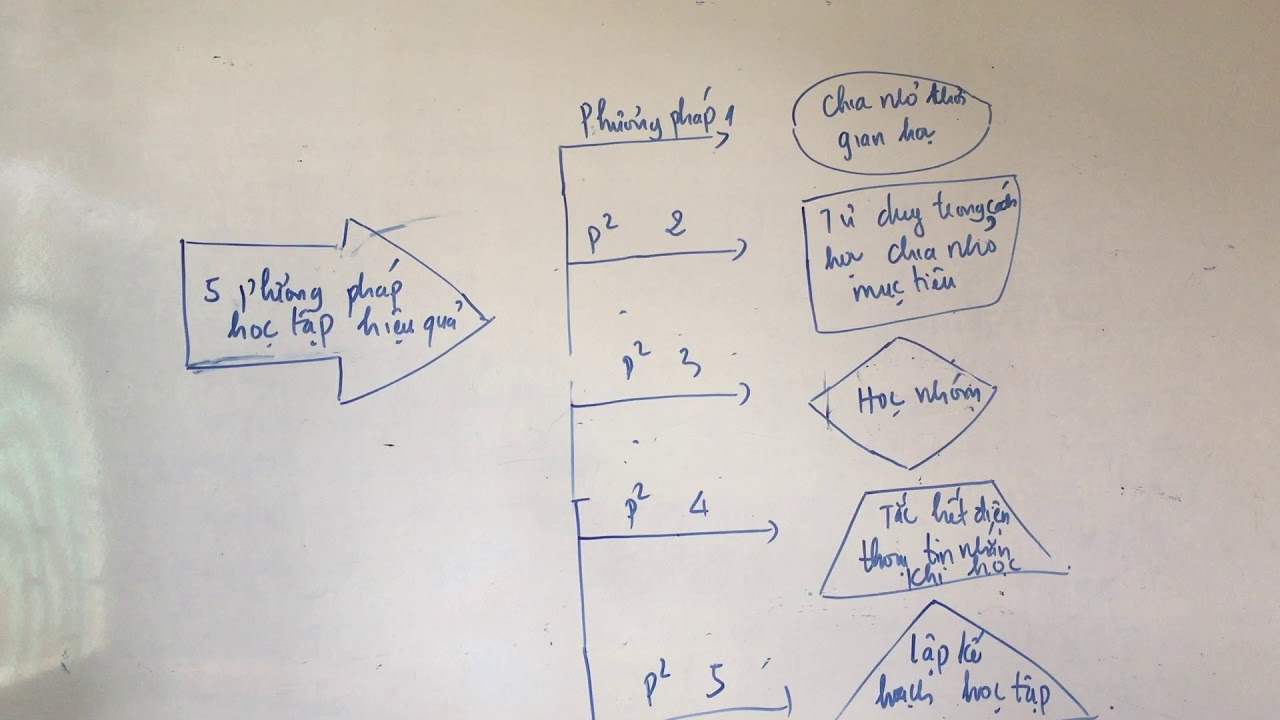 5 phương pháp
học tập hiệu quả
Phương pháp 1
chia nhỏ thời
gian học
p² 2
Tư duy trong cách
học chia nhỏ
mục tiêu
p² 3
Học nhóm
p² 4
Tắc hết điện
thoại tin nhắn
khi học
p² 5
lập kế
hoạch học tập